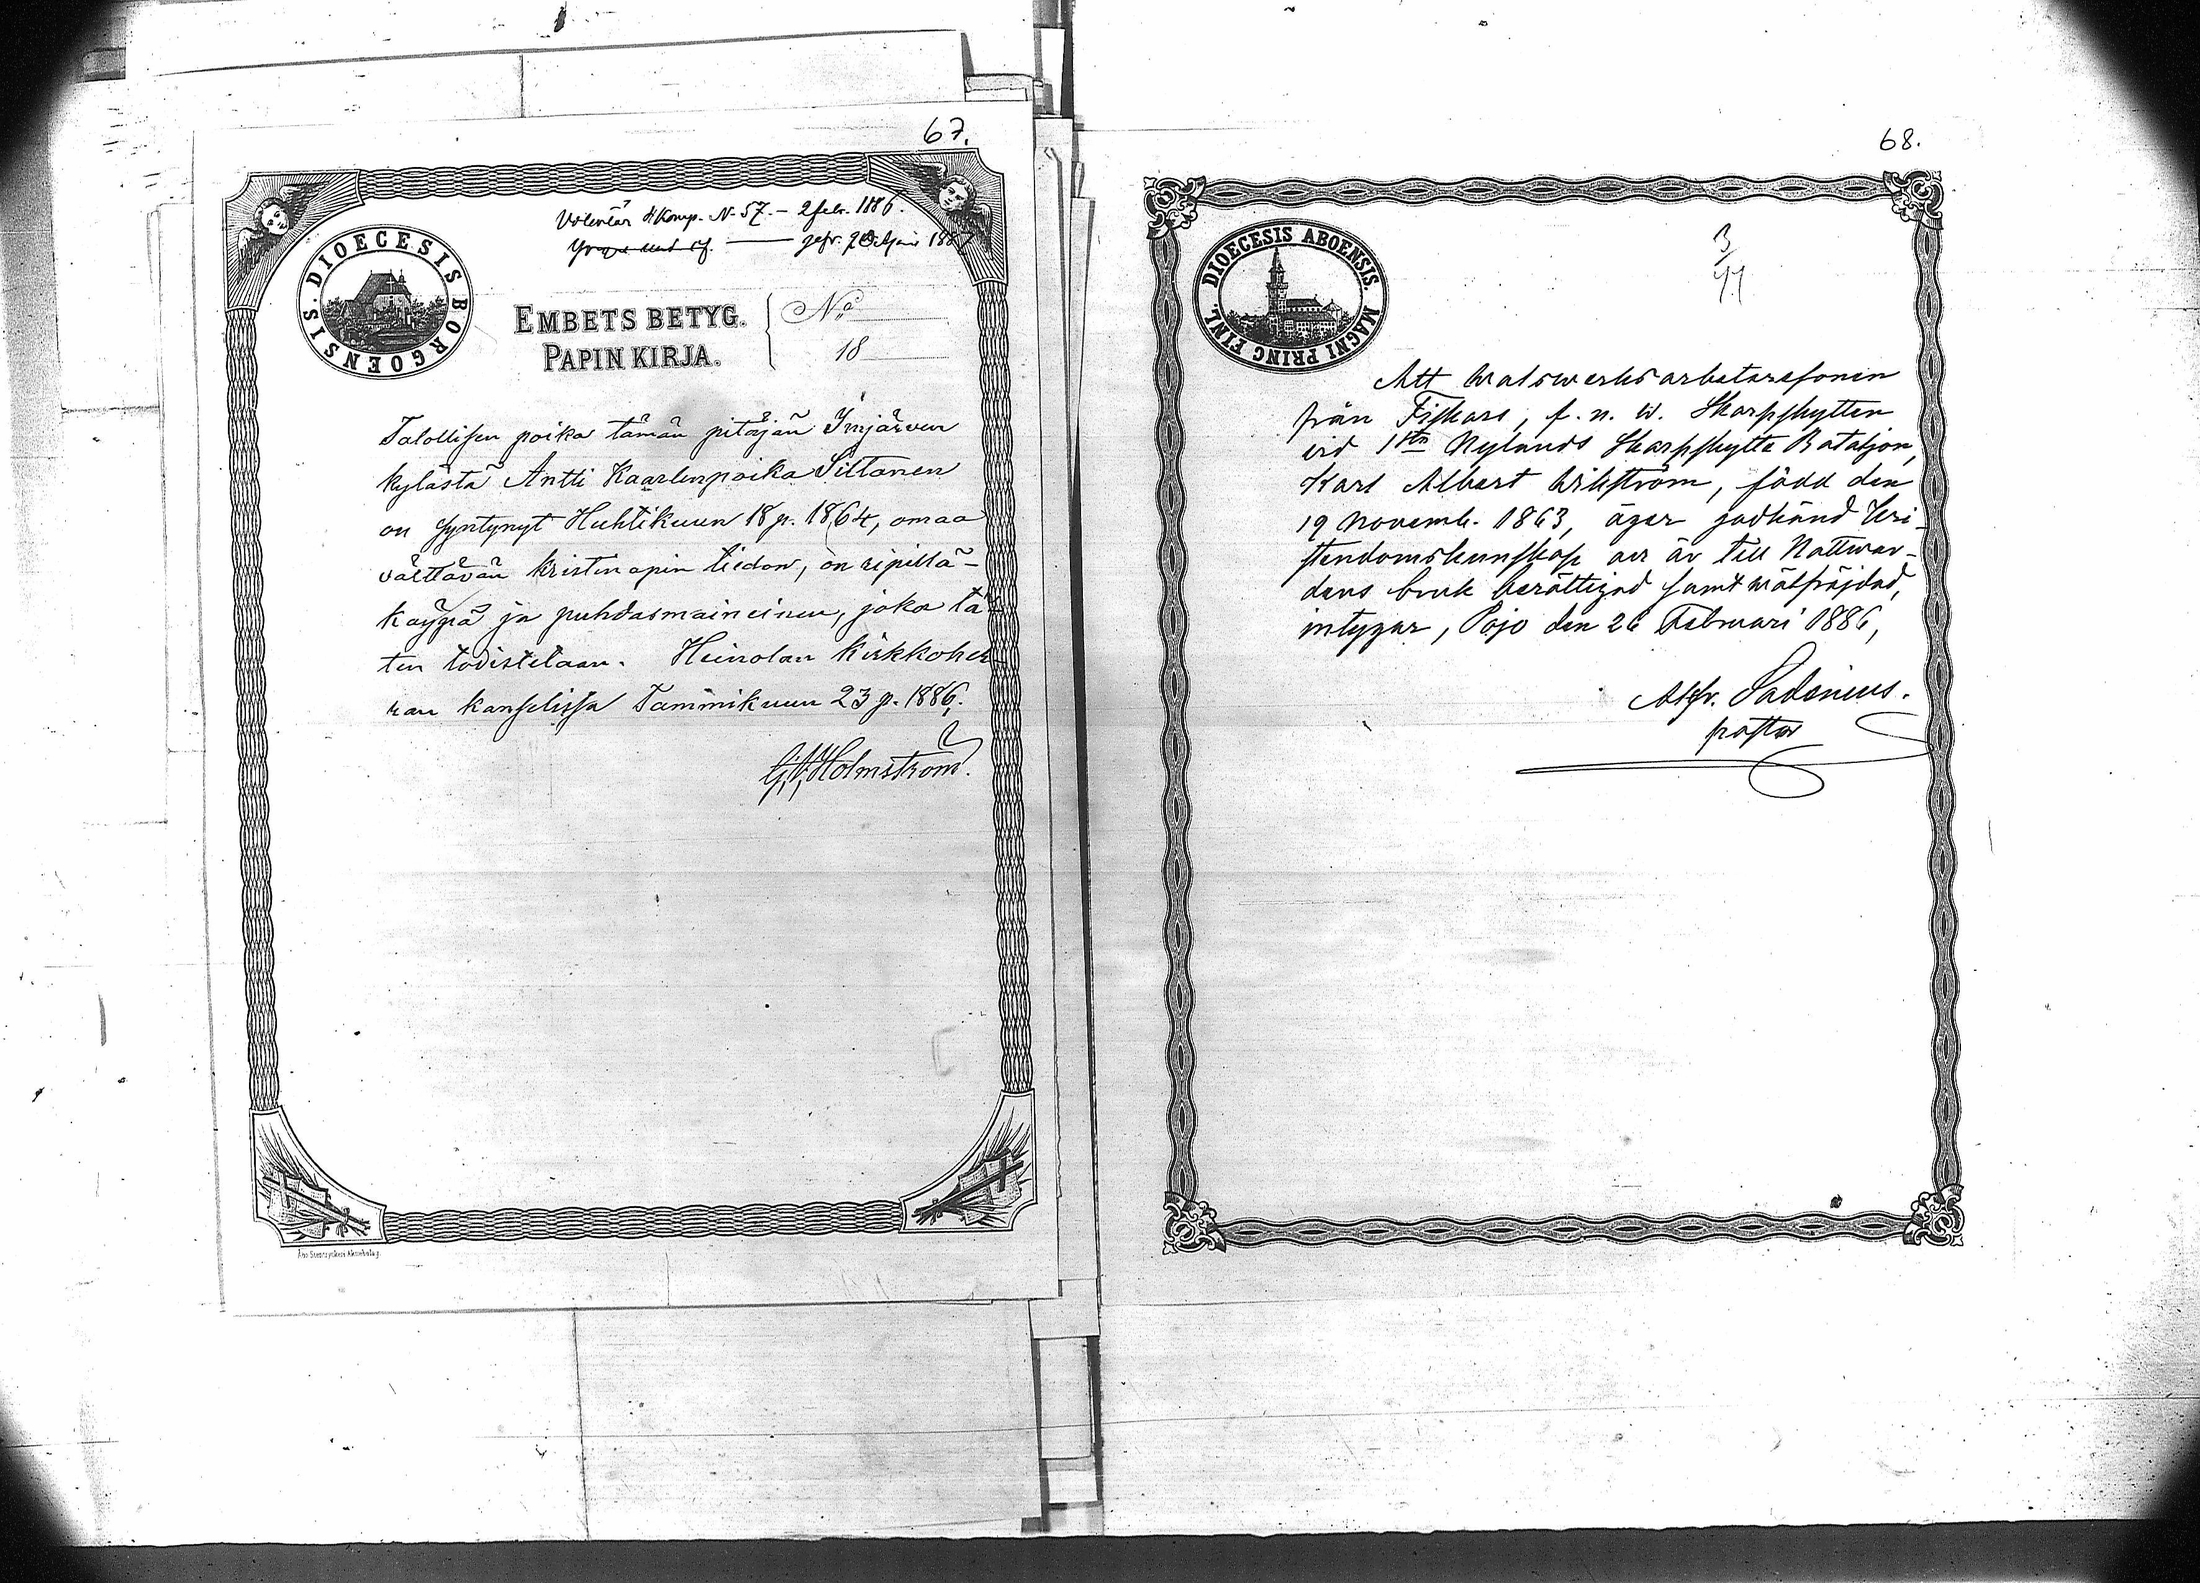 67.
Volontär 4 Komp. N. 57. — 2 febr. 1886.
gefr. 1887
DIOECESIS BORGOENSIS.
EMBETS BETYG.
PAPIN KIRJA.
No
18
Talollisen poika tämän pitäjän Imjärven
kylästä Antti Kaarlenpoika Siltanen
on syntynyt Huhtikuun 18 p. 1864, omaa
välttävän kristinopin tiedon, on ripillä-
käypä ja puhdasmaineinen, joka tä-
ten todistetaan. Heinolan kirkkoher-
ran kanslissa Tammikuun 23 p. 1886.
G. V. Holmström.
Åbo Stentryckeri Aktiebolag.
68.
3
DIOECESIS ABOENSIS. MAGNI PRINC FINL.
Att valswerksarbetaresonen
från Fiskars, f. n. w. Skarpskytten
vid 1sta Nylands Skarpskytte Bataljon,
Karl Albert Wikström, född den
19 Novemb. 1863, äger godkänd kri-
stendomskunskap och är till Nattvar-
dens bruk berättigad samt wälfräjdad,
intygar, Pojo den 26 Februari 1886,
Sadenius.
pastor